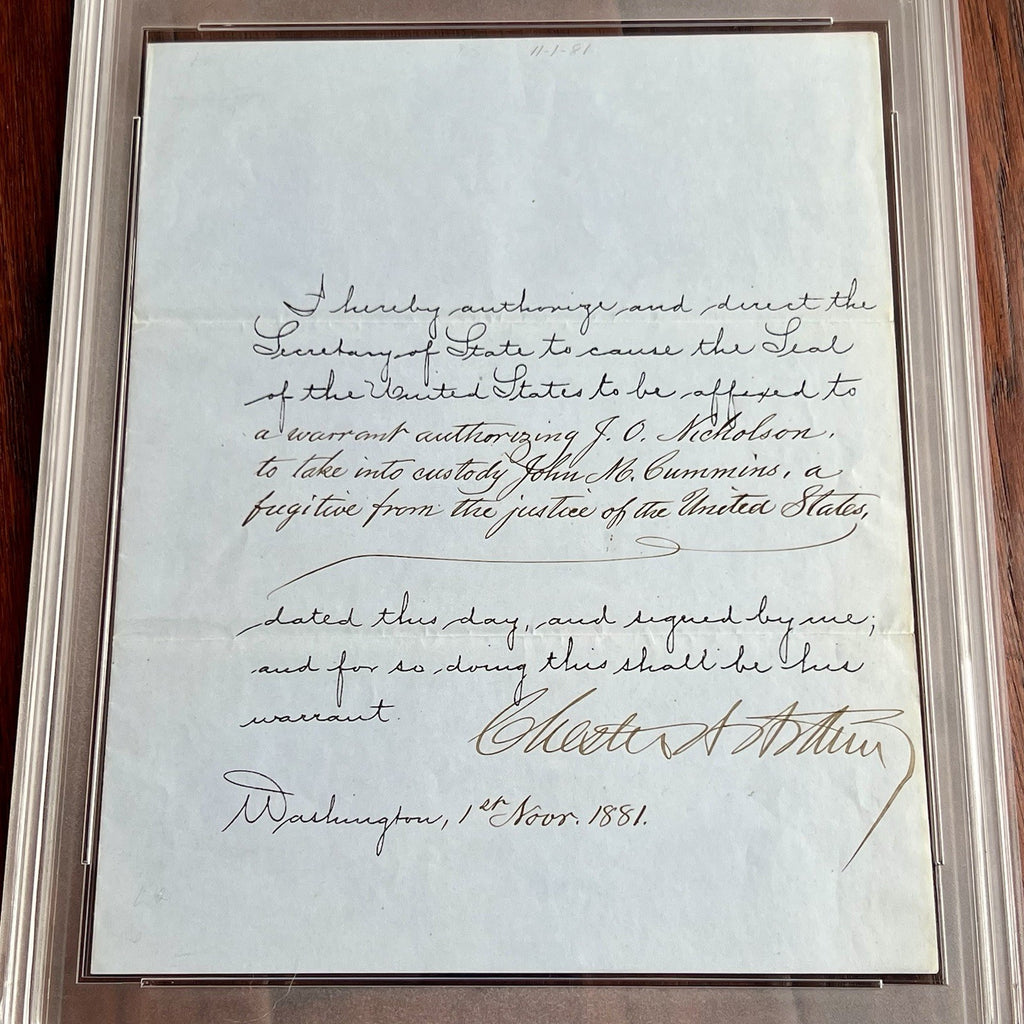 11-1-81
I hereby authorize and direct the
Secretary of State to cause the Seal
of the United States to be affixed to
a warrant authorizing J. O. Nicholson,
to take into custody John M. Cummins, a
fugitive from the justice of the United States,
dated this day, and signed by me;
and for so doing this shall be his
warrant.
Chester A Arthur
Washington, 1st Novr. 1881.